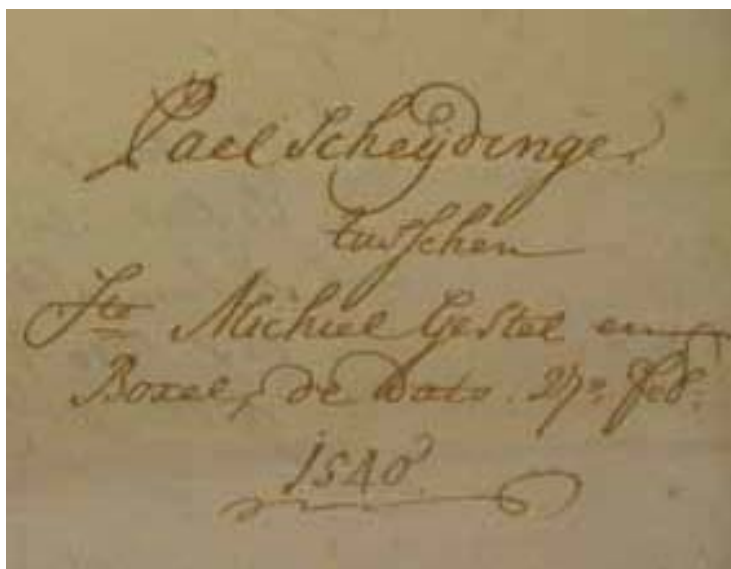 Pael Scheijdinge
tusschen
Ste Michiel Gestel en
Boxel, de Dato. 27e. feb:
1540